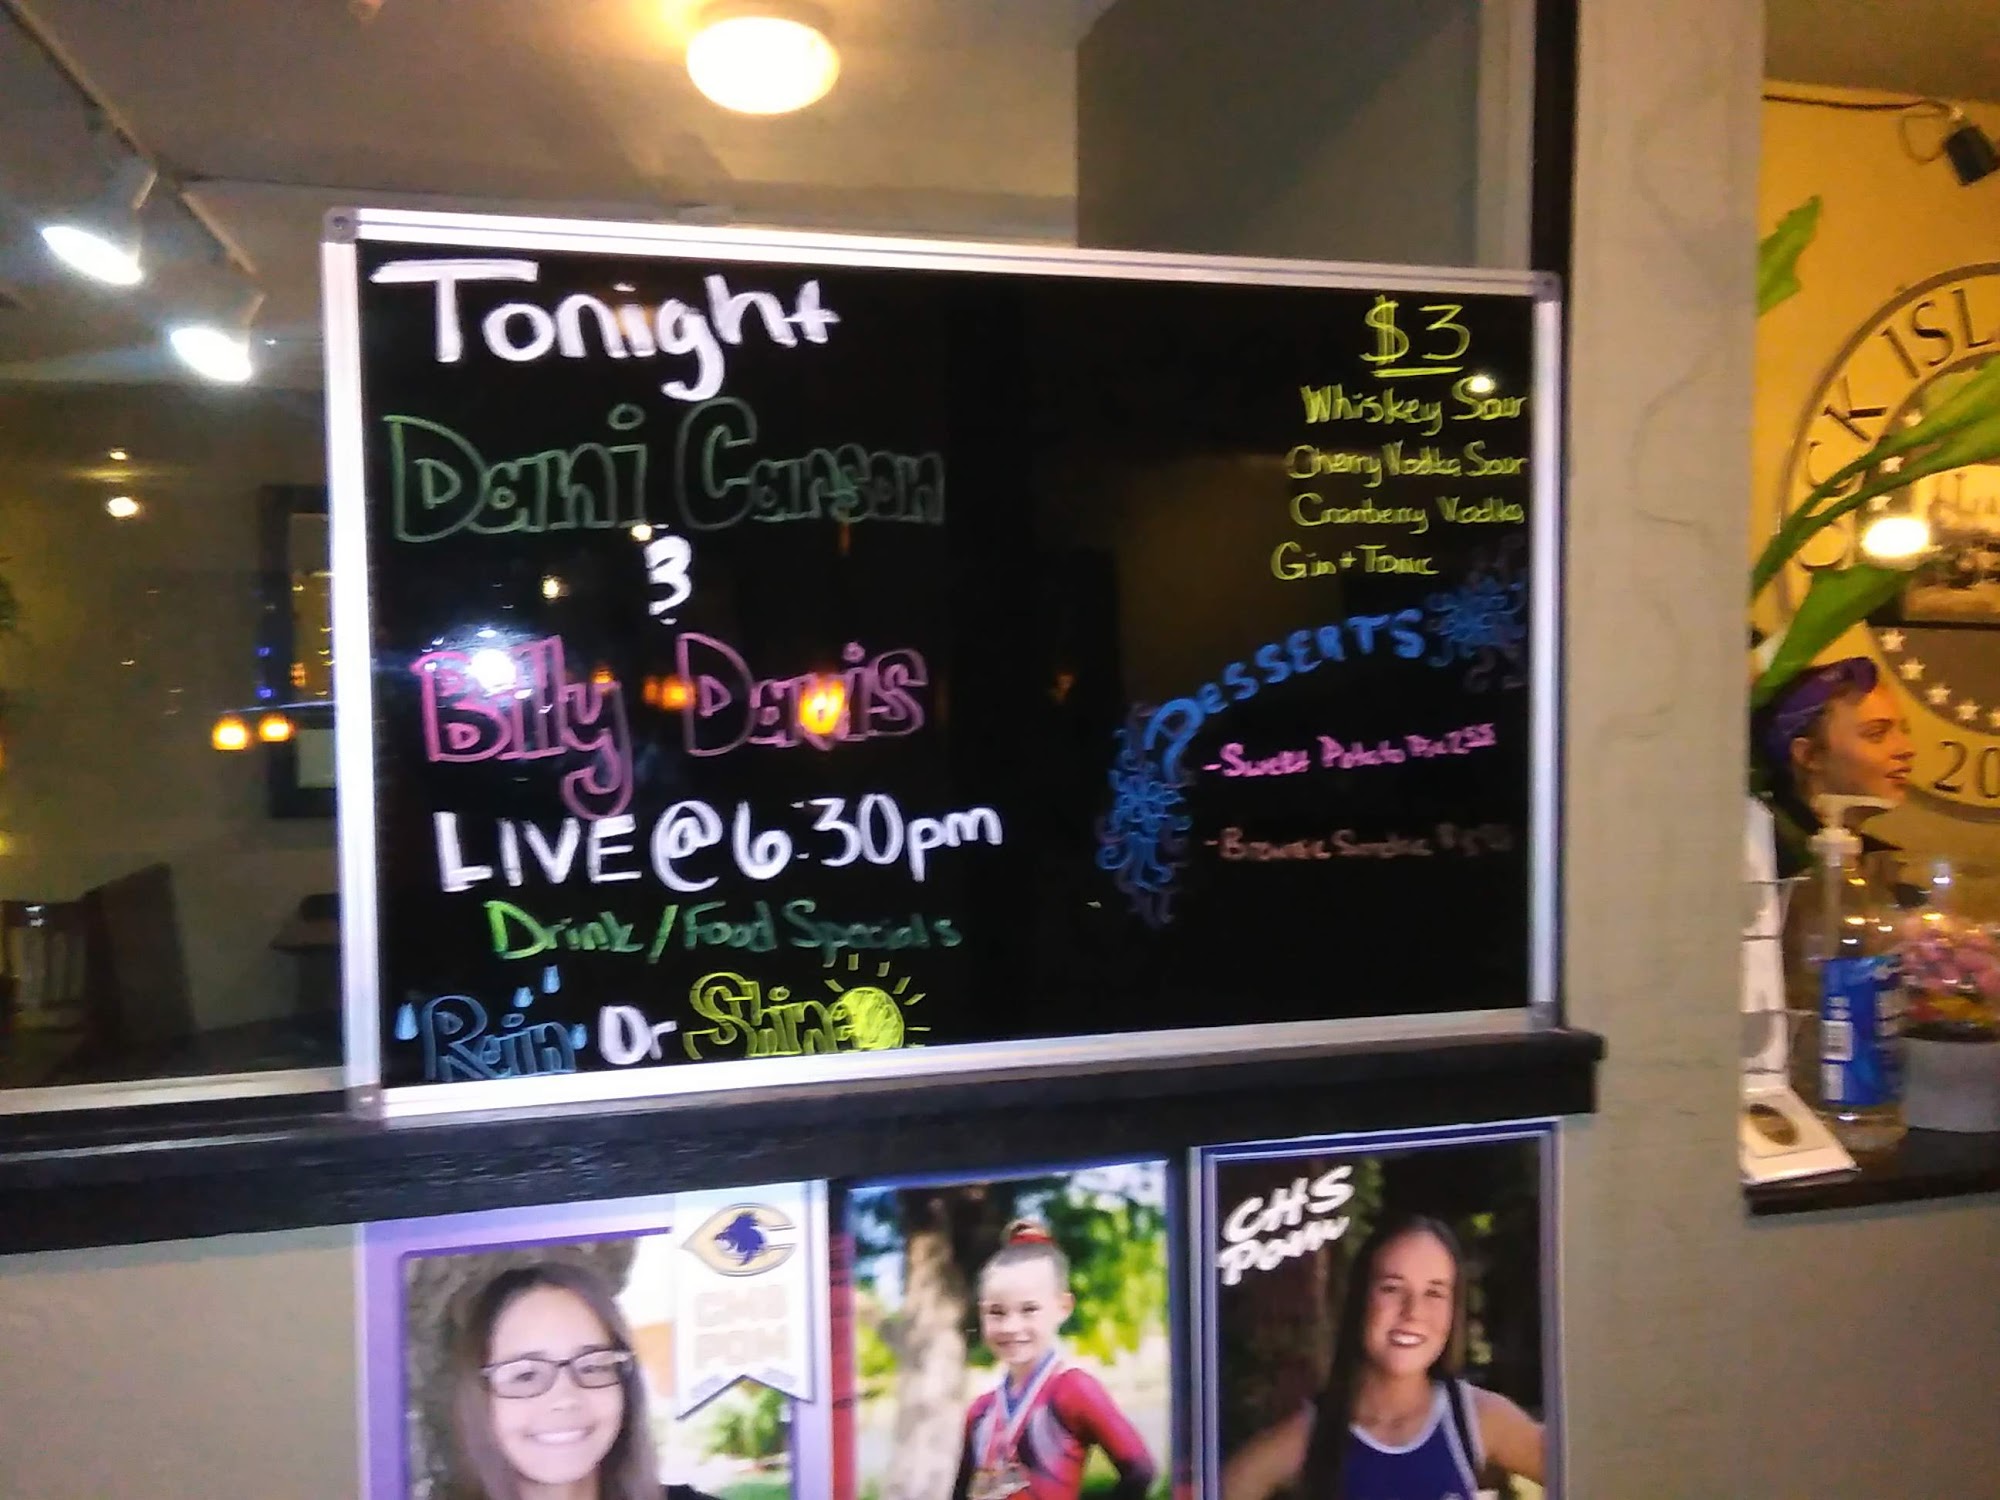 Tonight
Dani Carson
&
Billy Davis
LIVE @ 6:30pm
Drink/Food Specials
Rain Or Shine
$3
Whiskey Sour
Cherry Vodka Sour
Cranberry Vodka
Gin + Tonic
DESSERTS
- Sweet Potato Pie
- Brownie
CK ISL
20
C
CHS
POM
CHS
Pom